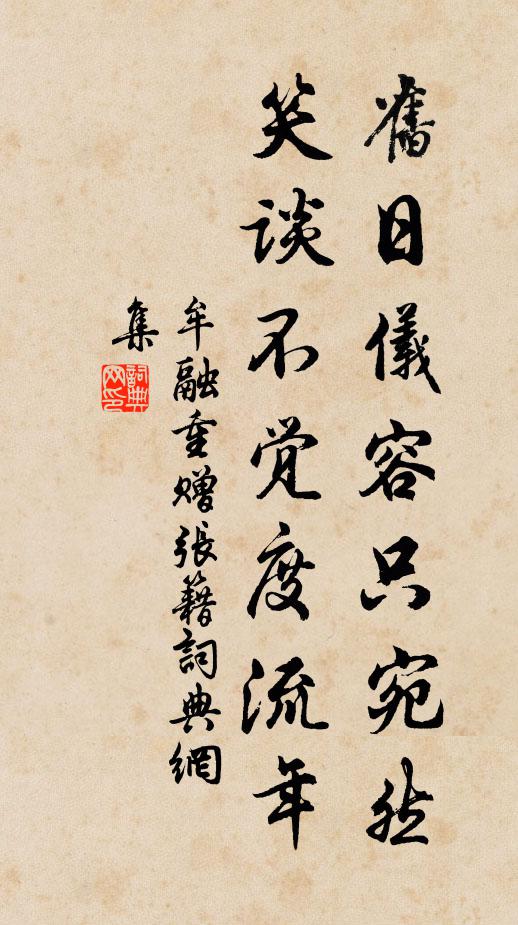 舊日儀容只宛然
笑談不覺度流年
牟融重贈張籍詞典網
集
詞典
网印